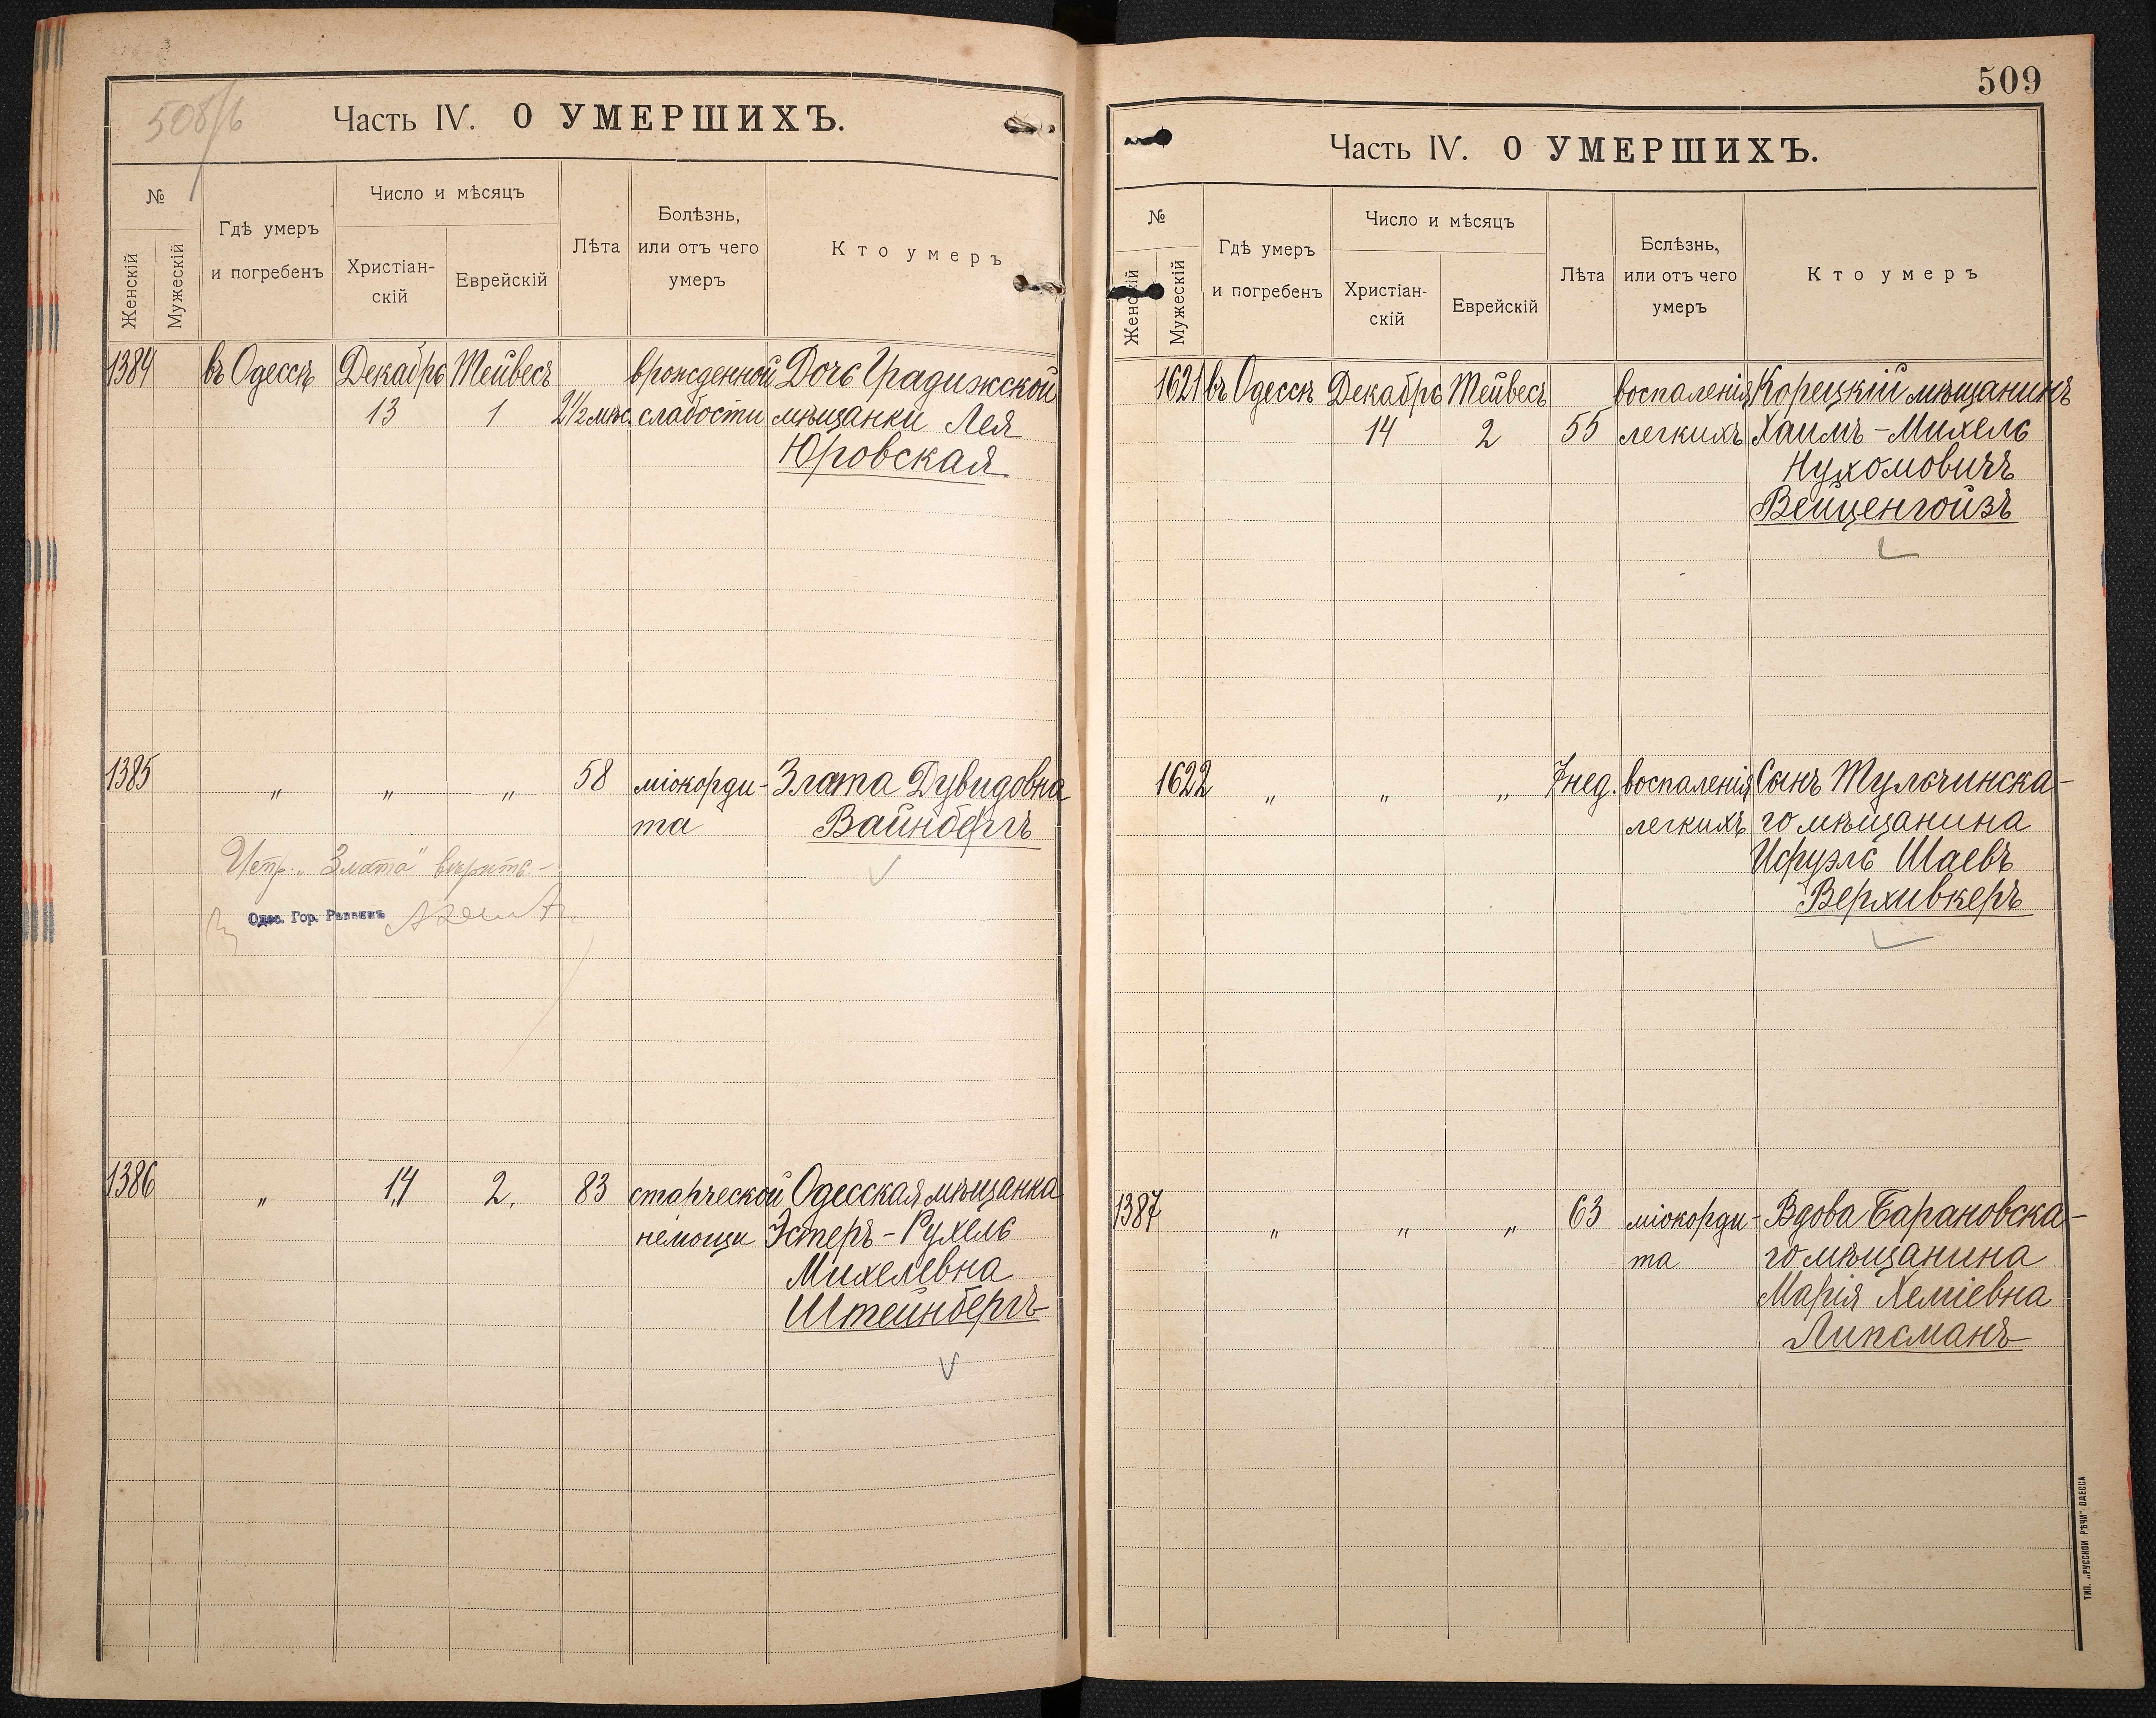 508/б
Часть IV. О УМЕРШИХЪ.
№
Женскій
Мужескій
Гдѣ умеръ
и погребенъ
Число и мѣсяцъ
Христіан-
скій
Еврейскій
Лѣта
Болѣзнь,
или отъ чего
умеръ
Кто умеръ
1384 въ Одессѣ Декабрь Тейвесъ врожденной Дочь Градижской
13 1 2 1/2 мѣс. слабости мѣщанки Лея
Юровская
1385 " " " 58 міокорди- Злата Дувидовна
та Вайнбергъ
Истр. "Злата" вѣрить.-
Одес. Гор. Раввинъ
1386 " 14 2. 83 старческой Одесская мѣщанка
немощи Эстеръ-Рухель
Михелевна
Штейнбергъ
509
Часть IV. О УМЕРШИХЪ.
№
Женскій
Мужескій
Гдѣ умеръ
и погребенъ
Число и мѣсяцъ
Христіан-
скій
Еврейскій
Лѣта
Бслѣзнь,
или отъ чего
умеръ
Кто умеръ
1621 въ Одессѣ Декабрь Тейвесъ воспаленія Корецкій мѣщанинъ
14 2 55 легкихъ Хаимъ-Михель
Нухомовичъ
Вейценгойзъ
1622 " " " 7 нед. воспаленія Сынъ Тульчинска-
легкихъ го мѣщанина
Исруэль Шаевъ
Верхивкеръ
1387 " " " 63 міокорди- Вдова Барановска-
та го мѣщанина
Марія Хеміевна
Липсманъ
ТИП. „РУССКОЙ РѢЧИ" ОДЕССА